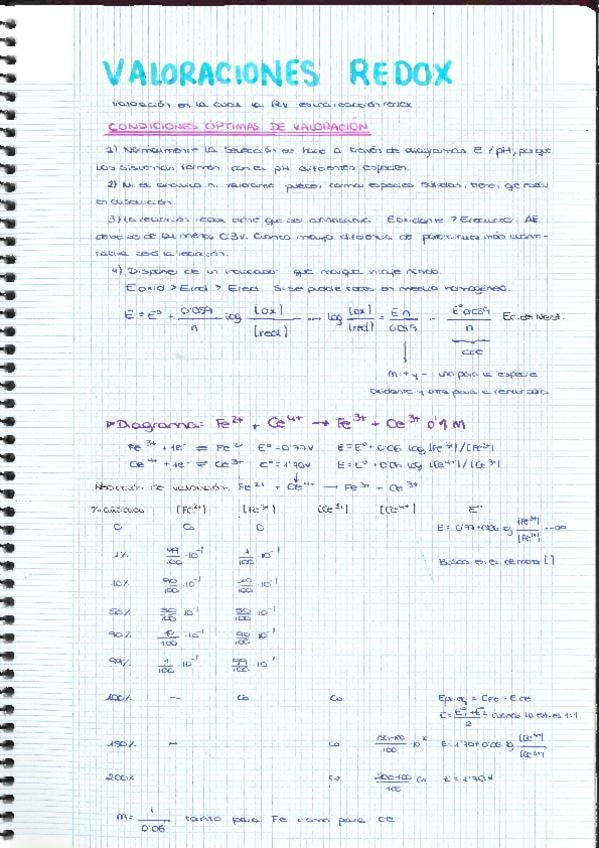 VALORACIONES REDOX
valoración en la cual la RV es una reacción redox
CONDICIONES ÓPTIMAS DE VALORACIÓN
1) Normalmente la selección se hace a través de diagramas E / pH, porque
los sistemas forman con el pH diferentes especies.
2) Ni el analito ni valorante pueden formar especies sólidas,
en disolución.
3) La reacción redox tiene que ser E oxidante > E reductor. ΔE
debe ser de al menos 0'3V. Cuanto mayor diferencia de potenciales más
será la reacción.
4) Disponer de un indicador que marque viraje
E oxid > E ind > E red Si se puede todos en medio homogéneo.
E = E° + 0'059/n log [ox]/[red] ... log [ox]/[red] = E n/0'059 - E°/0'059 Ec. de Nerst.
n
CTE
m: + y - una para la especie
oxidante y otra para el reductor
Diagrama: Fe2+ + Ce4+ → Fe3+ + Ce3+ 0'1 M
Fe3+ + 1e- ⇌ Fe2+ E° = 0'77V E = E° + 0'06 log [Fe3+]/[Fe2+]
Ce4+ + 1e- ⇌ Ce3+ E° = 1'70V E = E° + 0'06 log [Ce4+]/[Ce3+]
Reacción de valoración: Fe2+ + Ce4+ → Fe3+ + Ce3+
% añadido [Fe2+] [Fe3+] [Ce3+] [Ce4+] E
0 Co 0 E = 0'77 + 0'06 lg [Fe3+]/[Fe2+] = -∞
1% 99/100 · 10-1 1/100 · 10-1
10% 90/100 · 10-1 10/100 · 10-1
50% 50/100 · 10-1 50/100 · 10-1
90% 10/100 · 10-1 90/100 · 10-1
99% 1/100 · 10-1 99/100 · 10-1
100% -- Co Co
E = E°1 + E°2 / 2 cuando la est. es 1:1
150% -- Co 150-100/100 E = 1'70 + 0'06 lg [Ce4+]/[Ce3+]
200% Co 200-100/100 Co E = 1'70V
m = 1/0'06 tanto para Fe como para Ce